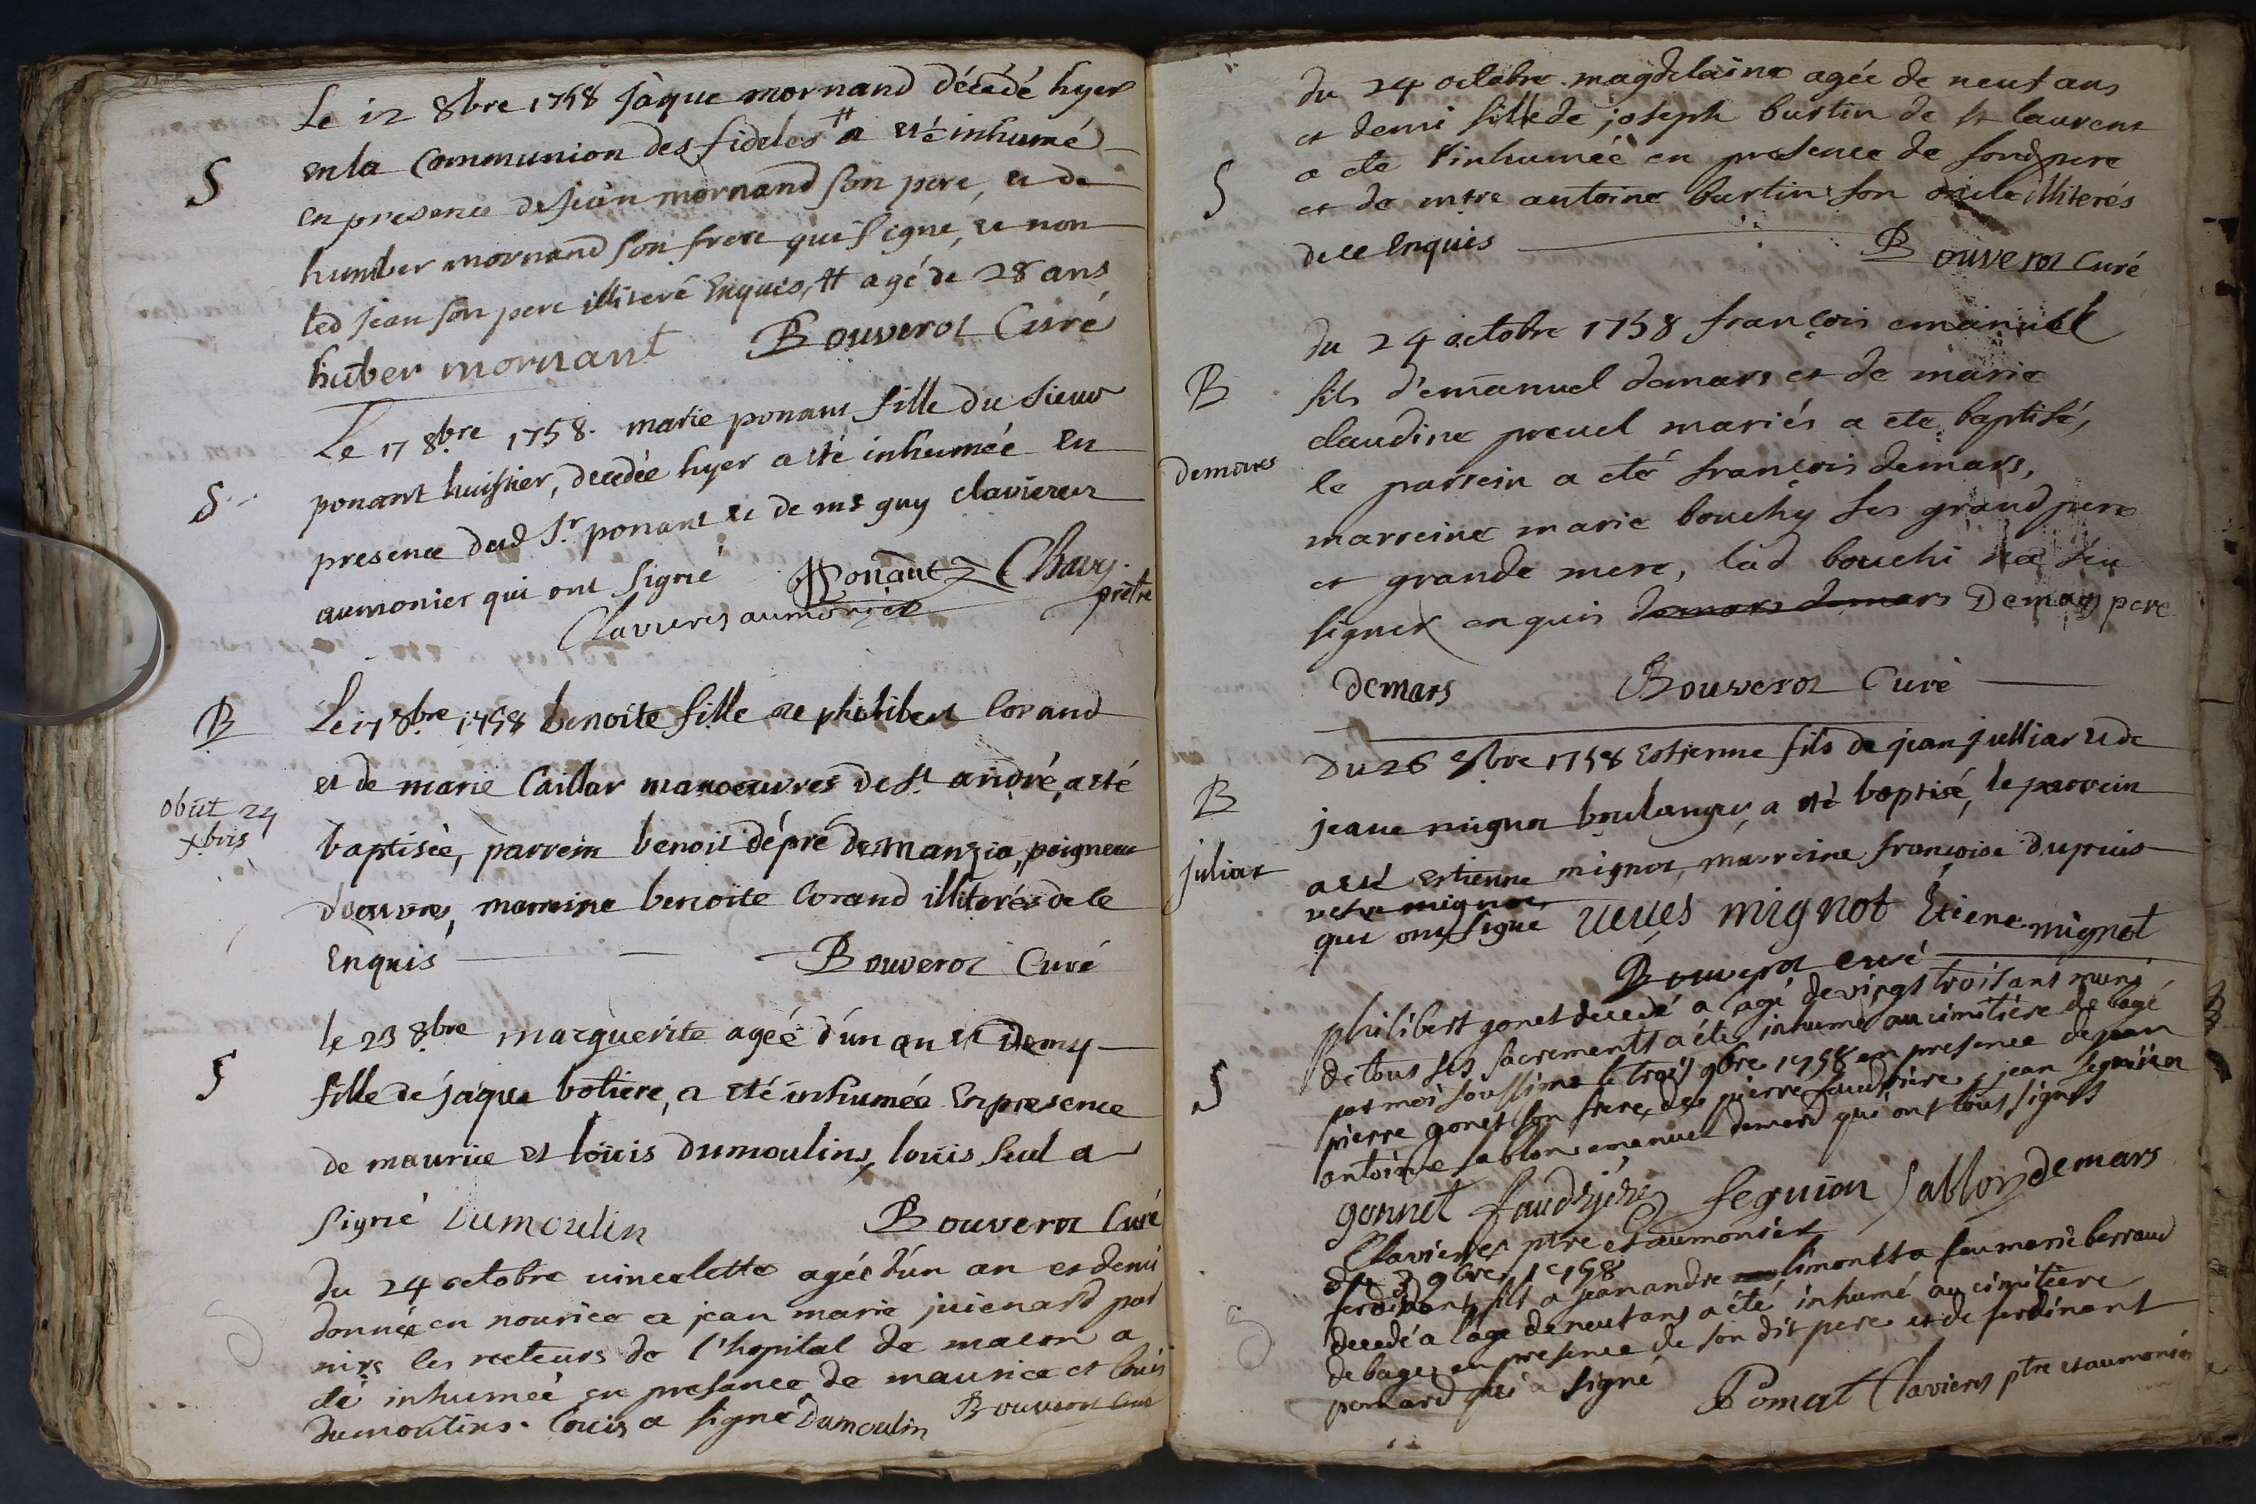 Le 12 8bre 1758 jaque mornand décédé hyer
S
en la Communion des fideles # a eté inhumé
en presence de jean mornand son pere, et de
humber mornand son frere qui signe, et non
led jean son pere illiteré Enquis, # agé de 28 ans
huber mornant Bouverot Curé
Le 17 8bre 1758. marie ponant fille du sieur
S
ponant huissier, decedée hyer a eté inhumée En
presence dud Sr. ponant et de mre guy clavieres
aumonier qui ont signé Ponant Chavy. prêtre
Clavieres aumonier
B
Le 17 8bre 1758 benoite fille de philibert Corand
et de marie Caillar manoeuvres de St andré, a eté
obiit 24
xbris
baptisée, parrein benoit dépré de manzia, peigneur
d'oeuvres, marreine benoite Corand illiterés de ce
Enquis Bouverot Curé
le 23 8bre marguerite agée d'un an et demy
S
fille de jaque botiere, a eté inhumée En presence
de maurice et loüis dumoulins, loüis seul a
signé Dumoulin Bouverot Curé
du 24 octobre vincelette agée d'un an et demi
donnée en nourice a jean marie juienard par
mrs les recteurs de l'hopital de macon a
été inhumée en presance de maurice et loüis
dumoulins. loüis a signé Dumoulin Bouverot Curé
du 24 octobre magdelaine agée de neuf ans
et demi fille de joseph burtin de st laurent
S
a ete inhumée en presence de sond pere
et de mtre antoine burtin son oncle illiterés
de ce Enquis Bouverot Curé
du 24 octobre 1758 françois emanuel
B
fils d'emanuel demars et de marie
claudine preuel mariés a ete baptisé,
demars
le parrein a eté françois demars,
marreine marie bouchy ses grand pere
et grande mere, lad bouchi na seu
signer enquis demars demars Demars pere
demars Bouverot Curé
Du 26 8bre 1758 Estienne fils de jean julliar et de
B
jeane mignot boulanger, a eté baptisé, le parrein
juliar
a eté estienne mignot, marreine françoise dupuis
veuve mignot
qui ont signé veuves mignot Etiene mignot
Bouverot curé
philibert gonet decedé a l'agé de vingt trois ans muni
S
de tous ses sacrements a été inhumé au cimitiére de bagé
par moi soussiné le trois 9bre 1758 en presence de jean
pierre gonet son frere, de pierre faudriére, jean seguin
antoine sablon emanuel demard qui ont tous signés
gonnet faudrière seguin Sablon demars
Clavieres ptre et aumonier
du 3 9bre 1758
ferdinant fils a jean andre limonet a feu marie berraud
decedé a l'age de neuf ans a été inhumé au cimitiere
de bage, en presence de son dit pere et de ferdinant
pomard qui a signé Pomat Clavieres ptre et aumonier